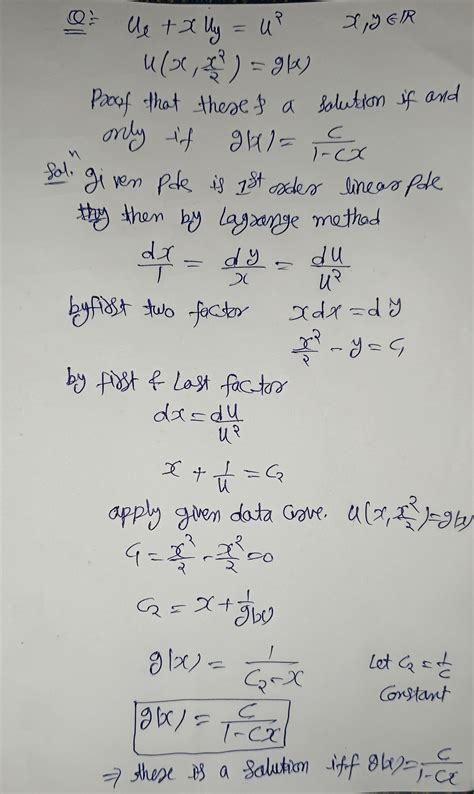 Q:- Ux + x Uy = U²    x, y ∈ ℝ
U(x, x²/2) = g(x)
Proof that there is a solution if and
only if g(x) = C/(1-Cx)
Solⁿ. given Pde is 1st order linear pde
then by Lagrange method
dx/1 = dy/x = dU/U²
by first two factor    x dx = dy
x²/2 - y = C₁
by first & Last factor
dx = dU/U²
x + 1/U = C₂
apply given data curve. U(x, x²/2) = g(x)
C₁ = x²/2 - x²/2 = 0
C₂ = x + 1/g(x)
g(x) = 1/(C₂-x)    Let C₂ = 1/C
Constant
g(x) = C/(1-Cx)
⇒ there is a solution iff g(x) = C/(1-Cx)